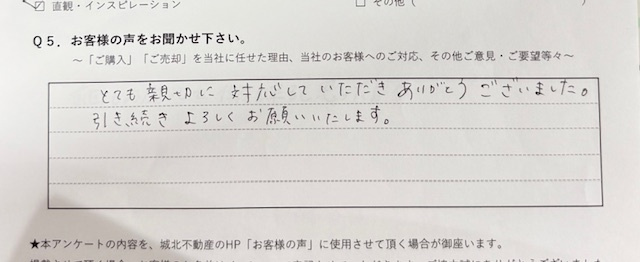 ☑ 直観・インスピレーション　□ その他（　　　）
Q5．お客様の声をお聞かせ下さい。
～「ご購入」「ご売却」を当社に任せた理由、当社のお客様へのご対応、その他ご意見・ご要望等々～
とても 親切に 対応して いただき ありがとう ございました。
引き続き よろしく お願いいたします。
★本アンケートの内容を、城北不動産のHP「お客様の声」に使用させて頂く場合が御座います。